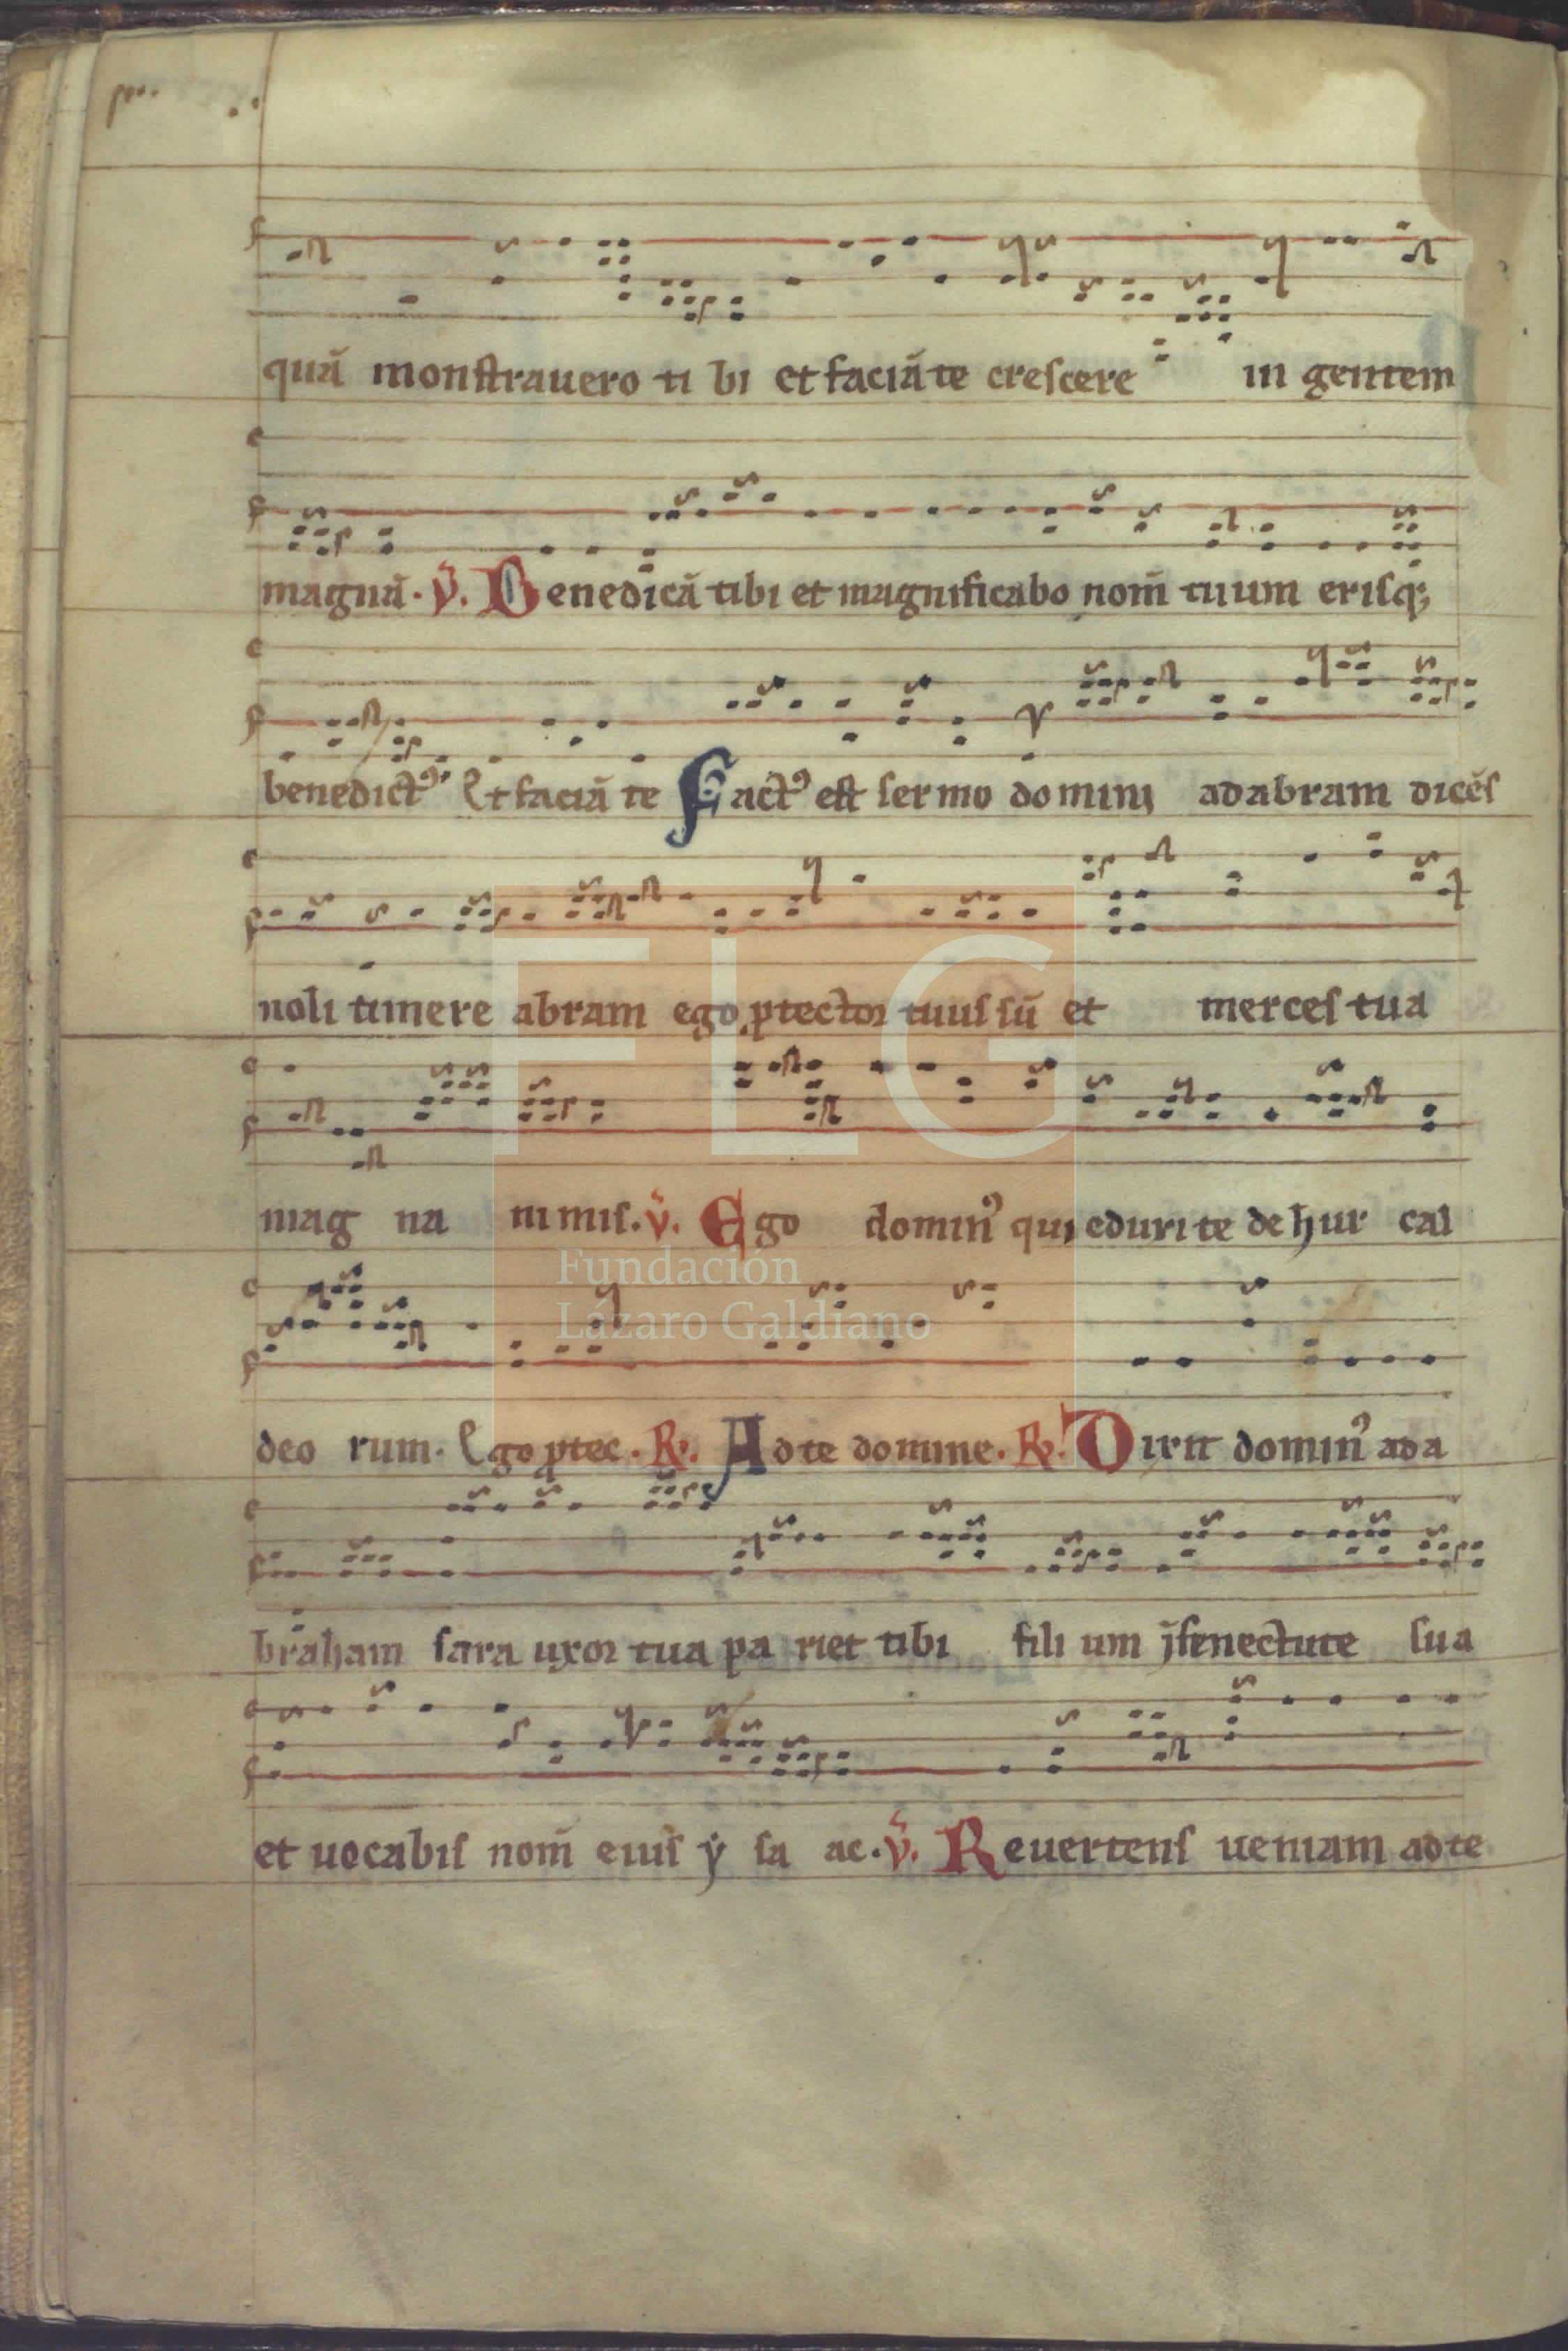 quā monstrauero ti bi et faciā te crescere in gentem
magnā. V̄. Benedicā tibi et magnificabo nom̄ tuum erisq;
benedictꝰ. Et faciā te Factꝰ est sermo domini ad abram dicēs
noli timere abram ego ꝓtector tuus sū et merces tua
mag na nimis. V̄. Ego dominꝰ qui eduxi te de hur cal
deo rum. Ego ꝓtec. ℟. Ad te domine. ℟. Dixit dominꝰ ad a
braham sara uxor tua pa riet tibi fili um ī senectute sua
et uocabis nom̄ eius ẏ sa ac. V̄. Reuertens ueniam ad te
FLG
Fundación
Lázaro Galdiano